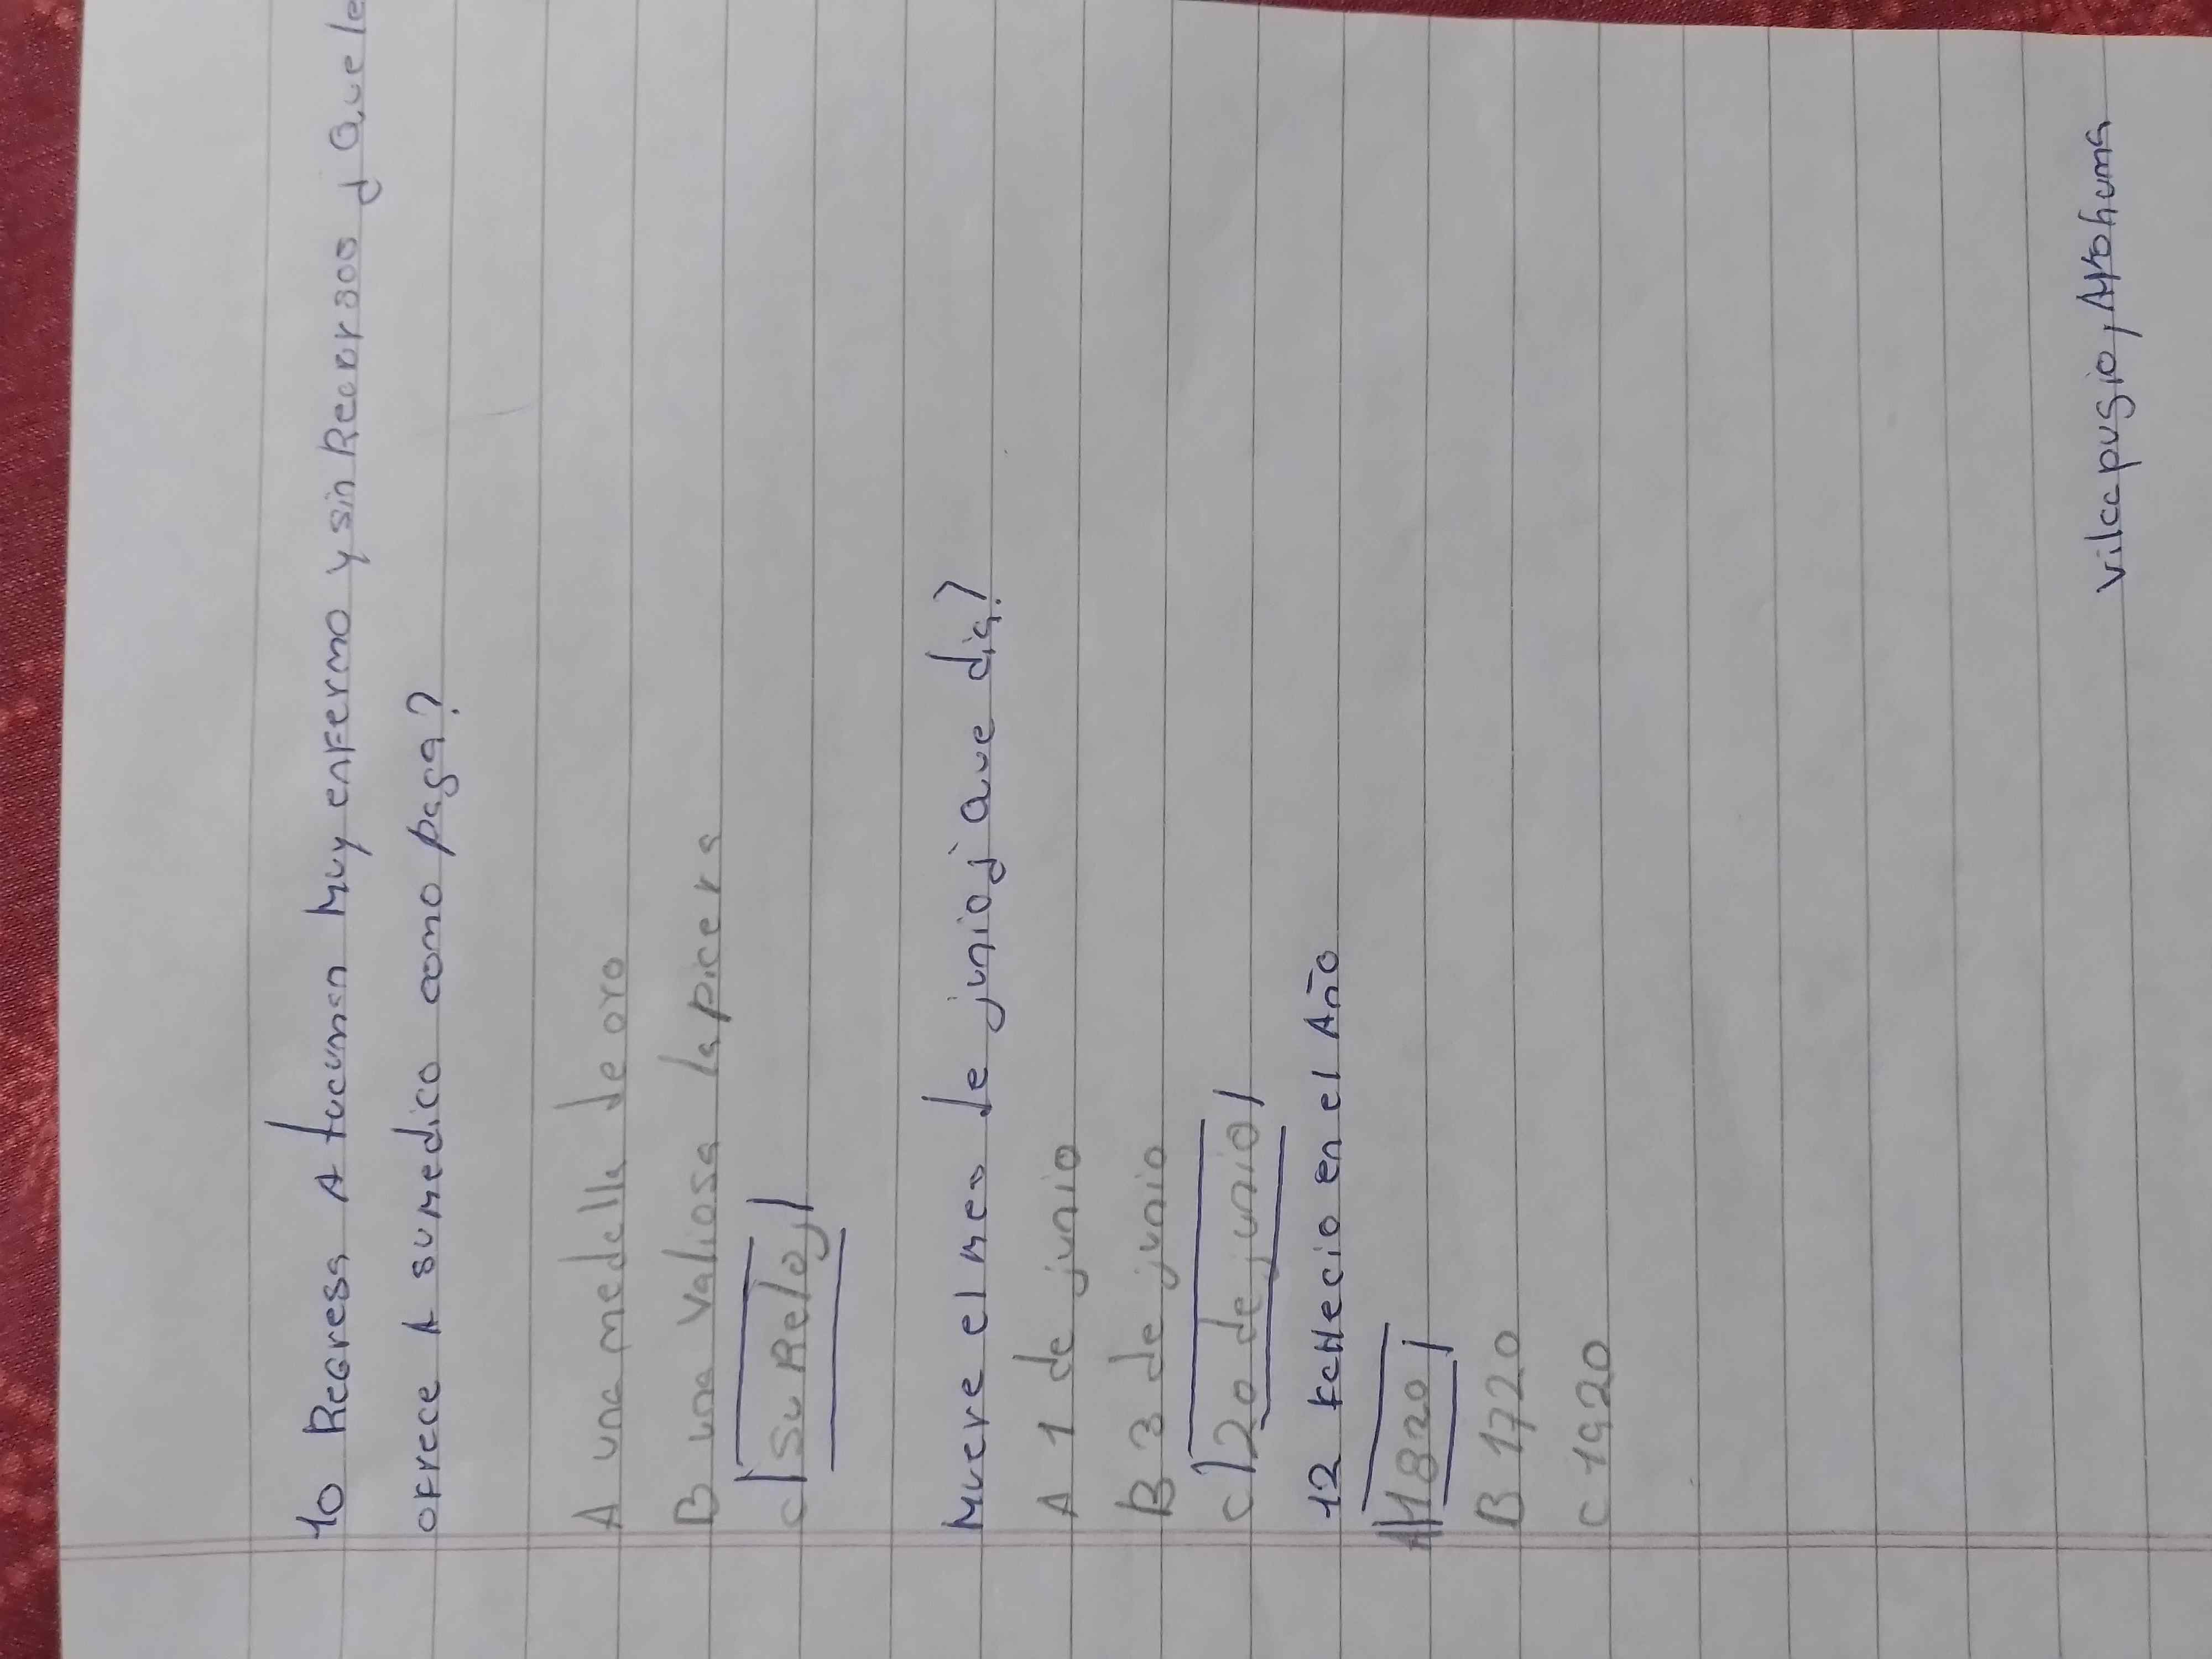 10 Regresa A tucuman Muy enfermo y sin Recorsos ¿ Que le
ofrece A sumedico como paga?
A una medalla de oro
B una valiosa lapicera
C su Reloj
Muere el mes de junio¿ Que dia?
A 1 de junio
B 3 de junio
C 20 de junio
12 Fallecio en el Año
A 1820
B 1720
C 1920
vilcapugio,